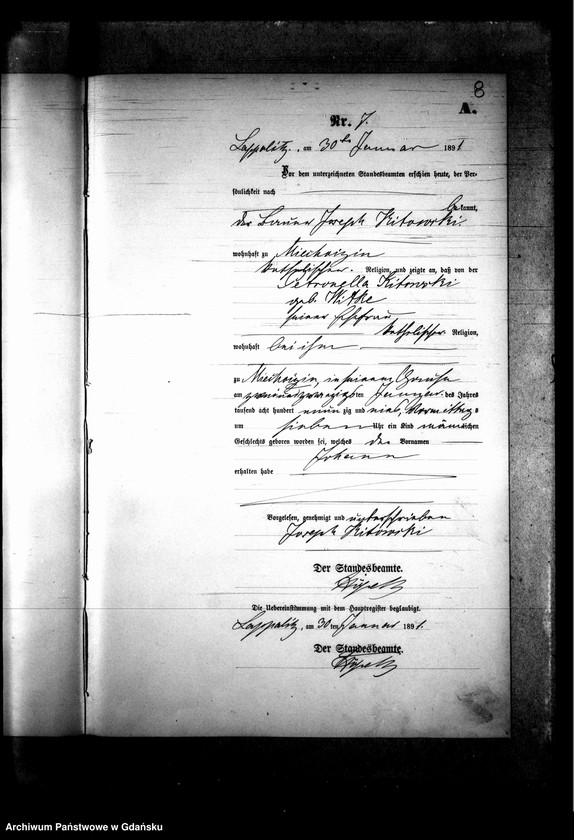 8
A.
Nr. 7.
Lappalitz, am 30ten Januar 1891
Vor dem unterzeichneten Standesbeamten erschien heute, der Per-
sönlichkeit nach
bekannt,
der Bauer Joseph Kitowski
wohnhaft zu Miechuczin
katholischer Religion, und zeigte an, daß von der
Petronella Kitowski
geb. Witke
seiner Ehefrau
katholischer Religion,
wohnhaft bei ihm
zu Miechuczin, in seinem Hause
am zweiundzwanzigsten Januar des Jahres
tausend acht hundert neunzig und eins, Vormittags
um sieben Uhr ein Kind männlichen
Geschlechts geboren worden sei, welches den Vornamen
Johann
erhalten habe
Vorgelesen, genehmigt und unterschrieben
Joseph Kitowski
Der Standesbeamte.
Die Uebereinstimmung mit dem Hauptregister beglaubigt.
Lappalitz, am 30ten Januar 1891.
Der Standesbeamte.
Archiwum Państwowe w Gdańsku